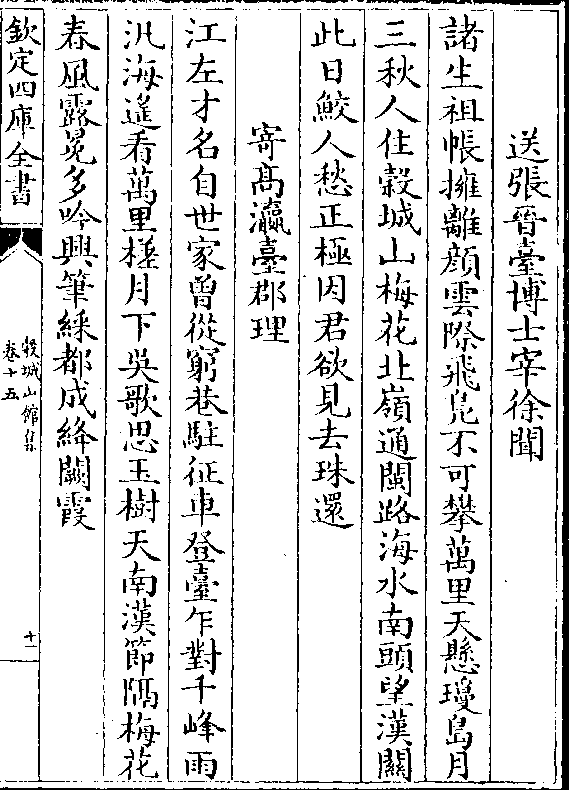 送張晉臺博士宰徐聞
諸生祖帳擁離顔雲際飛鳬不可攀萬里天懸瓊島月
三秋人住穀城山梅花北嶺通閩路海水南頭望漢關
此日鮫人愁正極因君欲見去珠還
寄髙瀛臺郡理
江左才名自世家曾從窮巷駐征車登臺乍對千峰雨
汎海遙看萬里槎月下吳歌思玉樹天南漢節隔梅花
春風露冕多吟興筆綵都成絳闕霞
欽定四庫全書
穀城山館集
卷十五
十一